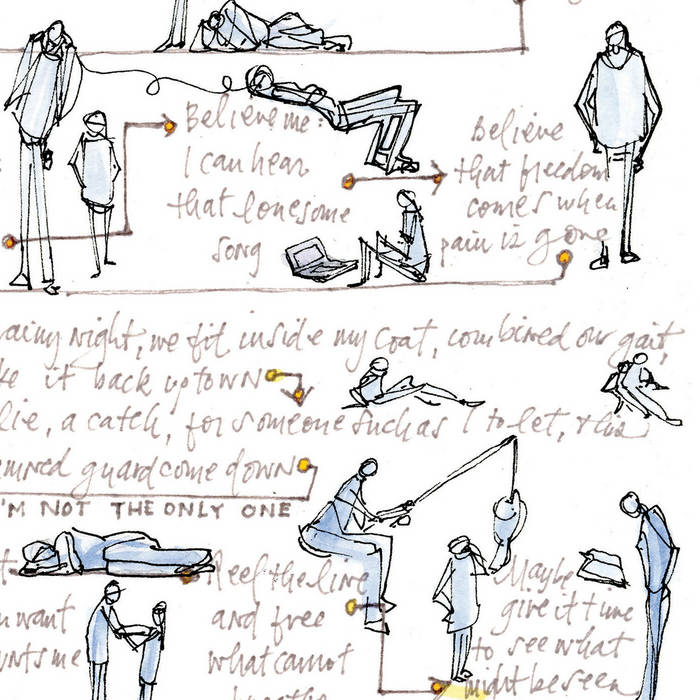 Believe me:
I can hear
that lonesome
song
Believe
that freedom
comes when
pain is gone
rainy night, we fit inside my coat, combined our gait,
it back uptown
lie, a catch, for someone such as I to let, this
guard come down
I'M NOT THE ONLY ONE
want
me
Reel the line
and free
what cannot
breathe
Maybe
give it time
to see what
might be seen